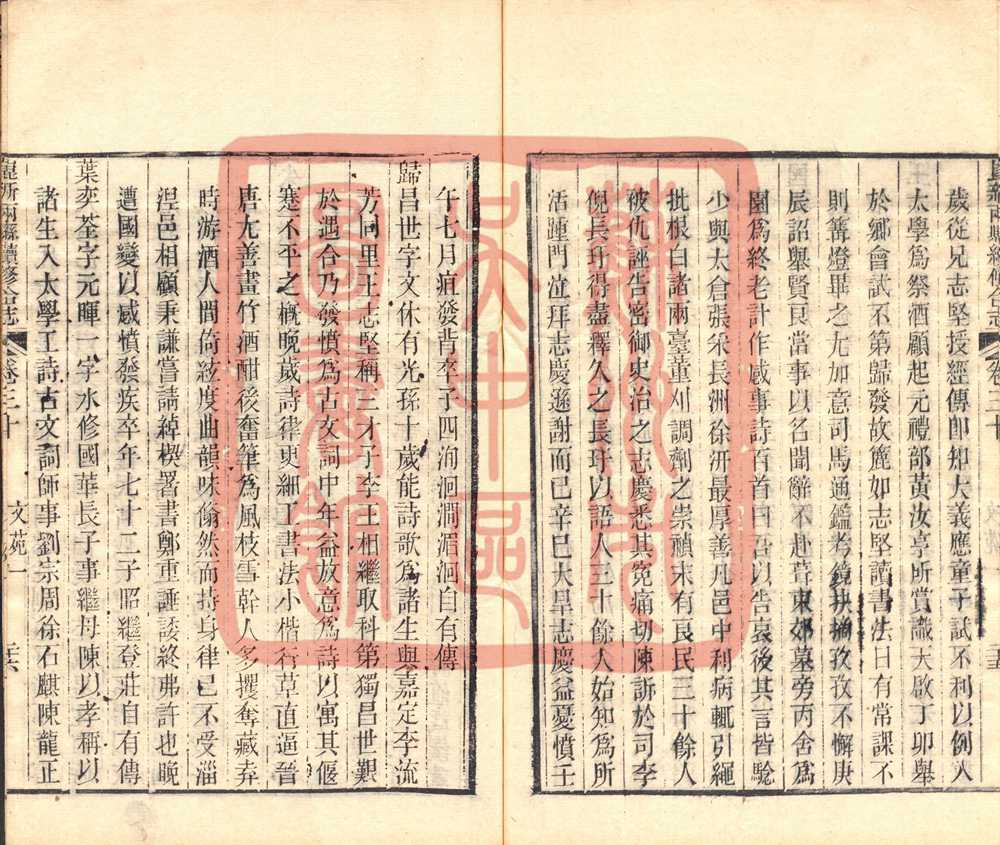 歲從兄志堅授經傳卽知大義應童子試不利以例入
太學爲祭酒顧起元禮部黃汝亭所賞識天啟丁卯舉
於鄉會試不第歸發故簏如志堅讀書法日有常課不
則篝燈畢之尤加意司馬通鑑考鏡抉摘孜孜不懈庚
辰詔舉賢良當事以名聞辭不赴葺東郊墓旁丙舍爲
園爲終老計作感事詩百首曰吾以告哀後其言皆驗
少與太倉張采長洲徐汧最厚善凡邑中利病輒引繩
批根白諸兩臺董刋調劑之崇禎末有良民三十餘人
被仇誣告密御史治之志慶悉其冤痛切陳訴於司李
倪長玗得盡釋久之長玗以語人三十餘人始知爲所
活踵門泣拜志慶遜謝而已辛巳大旱志慶益憂憤壬
午七月疽發背卒子四洵洄澗湄洄自有傳
歸昌世字文休有光孫十歲能詩歌爲諸生與嘉定李流
芳同里王志堅稱三才子李王相繼取科第獨昌世艱
於遇合乃發憤爲古文詞中年益放意爲詩以寓其偃
蹇不平之概晚歲詩律更細工書法小楷行草直逼晉
唐尤善畫竹酒酣後奮筆爲風枝雪幹人多攫奪藏弆
時游酒人間倚絃度曲韻味翛然而持身律己不受淄
涅邑相顧秉謙嘗請綽楔署書鄭重諈諉終弗許也晚
遭國變以感憤發疾卒年七十二子昭繼登莊自有傳
葉奕荃字元暉一字水修國華長子事繼母陳以孝稱以
諸生入太學工詩古文詞師事劉宗周徐石麒陳龍正
崑新兩縣續修合志 卷三十 文苑一 二六